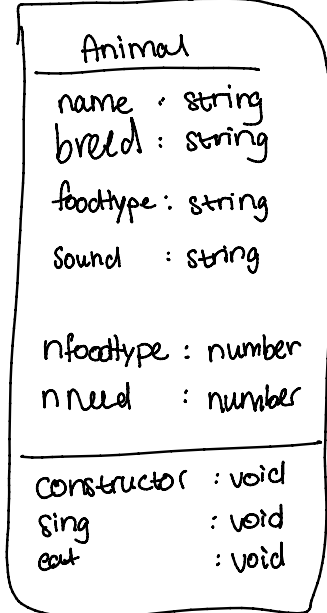 Animal
name : string
breed : string
foodtype : string
sound : string
nfoodtype : number
nneed : number
constructor : void
sing : void
eat : void